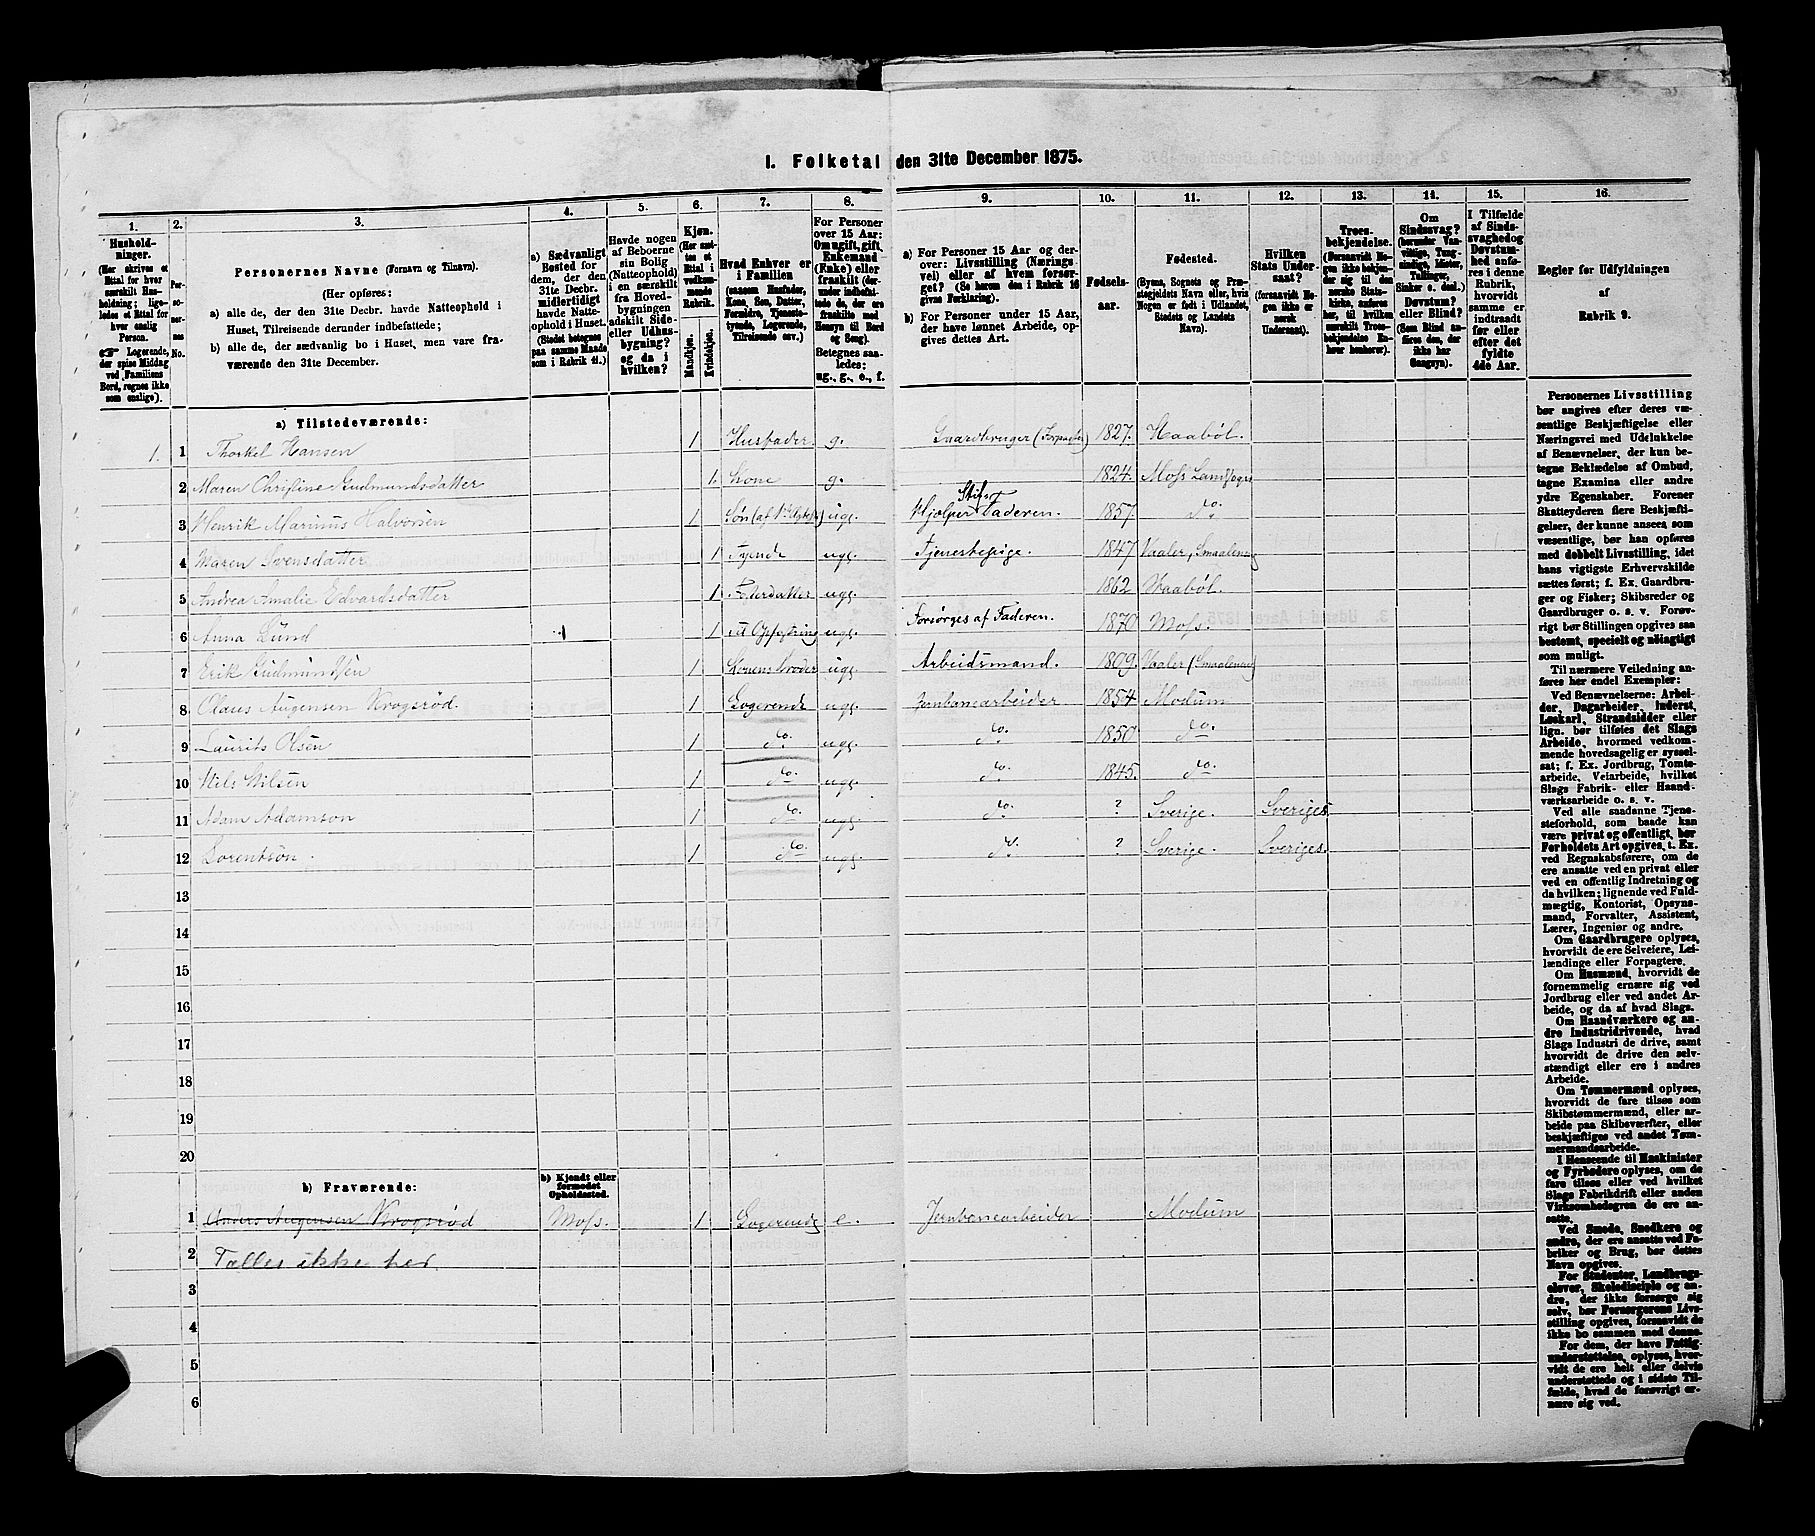 1. Folketal den 31te December 1875.
1. 2. 3. 4. 5. 6. 7. 8. 9. 10. 11. 12. 13. 14. 15. 16.
Hushold-
ninger.
(Her skrives et
Ettal for hver
særskilt Hus-
holdning; lige-
ledes et Ettal for
hver enslig
Person.
☞ Logerende,
der spise Middag
ved Familiens
Bord, regnes ikke
som enslige).
Per-
so-
ner-
nes
No.
Personernes Navne (Fornavn og Tilnavn).
(Her opføres:
a) alle de, der den 31te Decbr. havde Natteophold i
Huset, Tilreisende derunder indbefattede;
b) alle de, der sædvanlig bo i Huset, men vare fra-
værende den 31te December.
a) Sædvanligt
Bosted for
dem, der den
31te Decbr.
midlertidigt
havde Natte-
ophold i Huset.
(Stedet betegnes
paa samme Maade
som i Rubrik 11.)
Havde nogen
af Beboerne
sin Bolig
(Natteophold)
i en særskilt
fra Hoved-
bygningen
adskilt Side-
eller Udhus-
bygning?
og da i
hvilken?
Kjøn.
(Her sæt-
tes et
Ettal i
vedkom-
mende
Rubrik.
Mandkjøn.
Kvindekjøn.
Hvad Enhver er
i Familien
(saasom Husfader,
Kone, Søn, Datter,
Forældre, Tjeneste-
tyende, Logerende,
Tilreisende osv.)
For Personer
over 15 Aar:
Om ugift, gift,
Enkemand
(Enke) eller
fraskilt (der-
under indbefat-
tede de, der ere
fraskilte med
Hensyn til Bord
og Seng).
Betegnes saa-
ledes:
ug., g., e., f.
a) For Personer 15 Aar og der-
over: Livsstilling (Nærings-
vei) eller af hvem forsør-
get? (Se herom den i Rubrik 16
givne Forklaring).
b) For Personer under 15 Aar,
der have lønnet Arbeide, op-
gives dettes Art.
Fødsels-
aar.
Fødested.
(Byens, Sognets og Præ-
stegjeldets Navn eller, hvis
Nogen er født i Udlandet,
Stedets og Landets
Navn).
Hvilken
Stats Under-
saat?
(forsaavidt No-
gen ikke er
norsk
Undersaat).
Troes-
bekjendelse.
(Forsaavidt No-
gen ikke bekjen-
der sig til den
norske Stats-
kirke, anføres
her, til hvilken
særskilt Troes-
bekjendelse En-
hver henhører).
Om
Sindssvag?
(herunder Van-
vittige, Tung-
sindige, Idioter,
Tullinger,
Sinker o. desl.)
Døvstum?
eller Blind?
(Som Blind an-
føres den, der
ikke har
Gangsyn).
I Tilfælde
af Sinds-
svaghed og
Døvstum-
hed anfø-
res i denne
Rubrik,
hvorvidt
samme er
indtraadt
før eller
efter det
fyldte
4de Aar.
Regler for Udfyldningen
af
Rubrik 9.
a) Tilstedeværende:
1. 1 Thorkel Hansen 1 Husfader. g. Gaardbruger (Forpagter) 1827. Haabøl.
2 Maren Christine Gudmundsdatter 1. Kone g. 1824. Moss Landsogn
3 Henrik Marinus Halvorsen 1 Søn (af ug. Hjælper Stiffaderen. 1857. do.
4 Maren Svensdatter 1 Tyende ug. Tjenestepige. 1847 Vaaler, Smaalenene
5 Andrea Amalie Edvardsdatter 1 ug. 1862 Haabøl.
6 Anna Lund 1 til Opfostring ug. Forsørges af Faderen. 1870 Moss.
7 Erik Gudmundsen 1 Konens broder ug. Arbeidsmand. 1809 Vaaler (Smaalenene)
8 Olaus Augensen Krogsrød. 1 Logerende ug. Jernbanearbeider 1854 Modum
9 Laurits Olsen 1 do. ug. do. 1850 do.
10 Nils Nilsen 1 do. ug. do. 1845. do.
11 Adam Adamson 1 do. ug. do. ? Sverige. Sveriges.
12 Lorentson. 1 do. ug. do. ? Sverige. Sveriges.
13
14
15
16
17
18
19
20
b) Fraværende:
b) Kjendt eller
formodet
Opholdssted.
1 Anders Augensen Krogsrød Moss. 1 Logerende e. Jernbanearbeider Modum
2 Tælles ikke her.
3
4
5
6
Personernes Livsstilling
bør angives efter deres væ-
sentlige Beskjæftigelse eller
Næringsvei med Udelukkelse
af Benævnelser, der kun be-
tegne Beklædelse af Ombud,
tagne Examina eller andre
ydre Egenskaber. Forener
Skatteyderen flere Beskjæfti-
gelser, der kunne ansees som
væsentlige, bør han opføres
med dobbelt Livsstilling, idet
hans vigtigste Erhvervskilde
sættes først; f. Ex. Gaardbru-
ger og Fisker; Skibsreder og
Gaardbruger o. s. v. Forøv-
rigt bør Stillingen opgives saa
bestemt, specielt og nøiagtigt
som muligt.
Til nærmere Veiledning an-
føres her endel Exempler:
Ved Benævnelserne: Arbei-
der, Dagarbeider, Inderst,
Løskarl, Strandsidder eller
lign. bør tilføies det Slags
Arbeide, hvormed vedkom-
mende hovedsagelig er syssel-
sat; f. Ex. Jordbrug, Tomte-
arbeide, Veiarbeide, hvilket
Slags Fabrik- eller Haand-
værksarbeide o. s. v.
Ved alle saadanne Tjene-
steforhold, som baade kan
være privat og offentligt, bør
Forholdets Art opgives, t. Ex.
ved Regnskabsførere, om de
ere ansatte ved en privat eller
ved en offentlig Indretning og
da hvilken; lignende ved Fuld-
mægtig, Kontorist, Opsyns-
mand, Forvalter, Assistent,
Lærer, Ingeniør og andre.
Om Gaardbrugere oplyses,
hvorvidt de ere Selveiere, Lei-
lændinge eller Forpagtere.
Om Husmænd, hvorvidt de
fornemmelig ernære sig ved
Jordbrug eller ved andet Ar-
beide, og da af hvad Slags.
Om Haandværkere og an-
dre Industridrivende, hvad
Slags Industri de drive, samt
hvorvidt de drive den selv-
stændigt eller ere i andres
Arbeide.
Om Tømmermænd oplyses,
hvorvidt de fare tilsøs som
Skibstømmermænd, eller ar-
beide paa Skibsværfter, eller
beskjæftiges ved andet Tøm-
mermandsarbeide.
I Henseende til Maskinister
og Fyrbødere oplyses, om de
fare tilsøs eller ved hvilket
Slags Fabrikdrift eller anden
Virksomhed de ere an-
satte.
Ved Smede, Snedkere og
andre, der ere ansatte ved Fa-
briker og Brug, bør dettes
Navn opgives.
For Studenter, Landbrugs-
elever, Skoledisciple og an-
dre, der ikke forsørge sig
selv, bør Forsørgerens Livs-
stilling opgives, forsaavidt de
ikke bo sammen med denne.
For dem, der have Fattig-
understøttelse, oplyses, hvor-
vidt de ere helt eller delvis
understøttede og i sidste Til-
fælde, hvad de forøvrigt er-
nære sig ved.